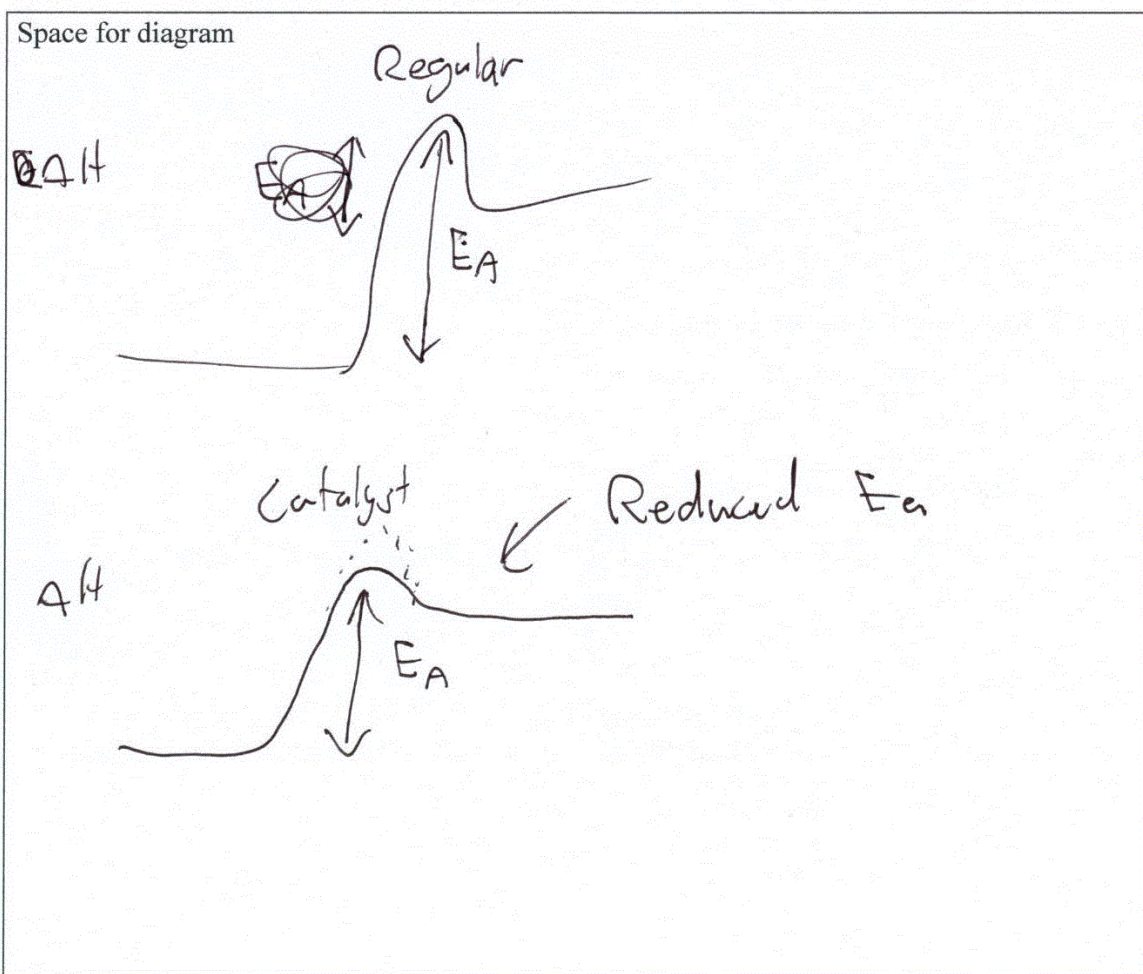 Space for diagram
Regular
ΔH
EA
EA
Catalyst
Reduced Ea
ΔH
EA